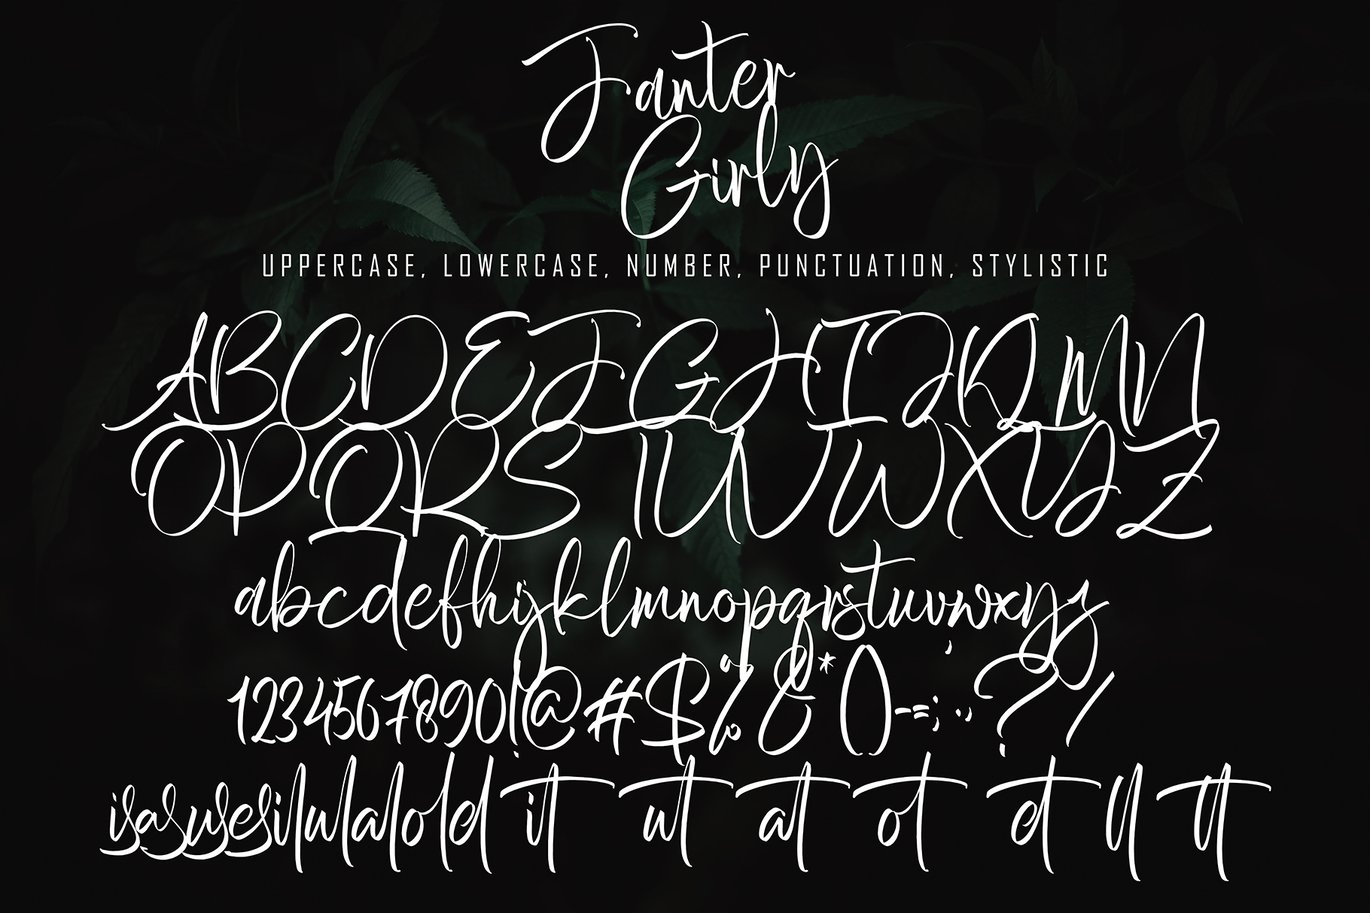 Fanter
Girly
UPPERCASE, LOWERCASE, NUMBER, PUNCTUATION, STYLISTIC
ABCDEFGHIJKLMN
OPQRSTUVWXYZ
abcdefghijklmnopqrstuvwxyz
1234567890!@#$%&*()-=;'.,?/
isasusesilulalolel it ut at ot et ll tt